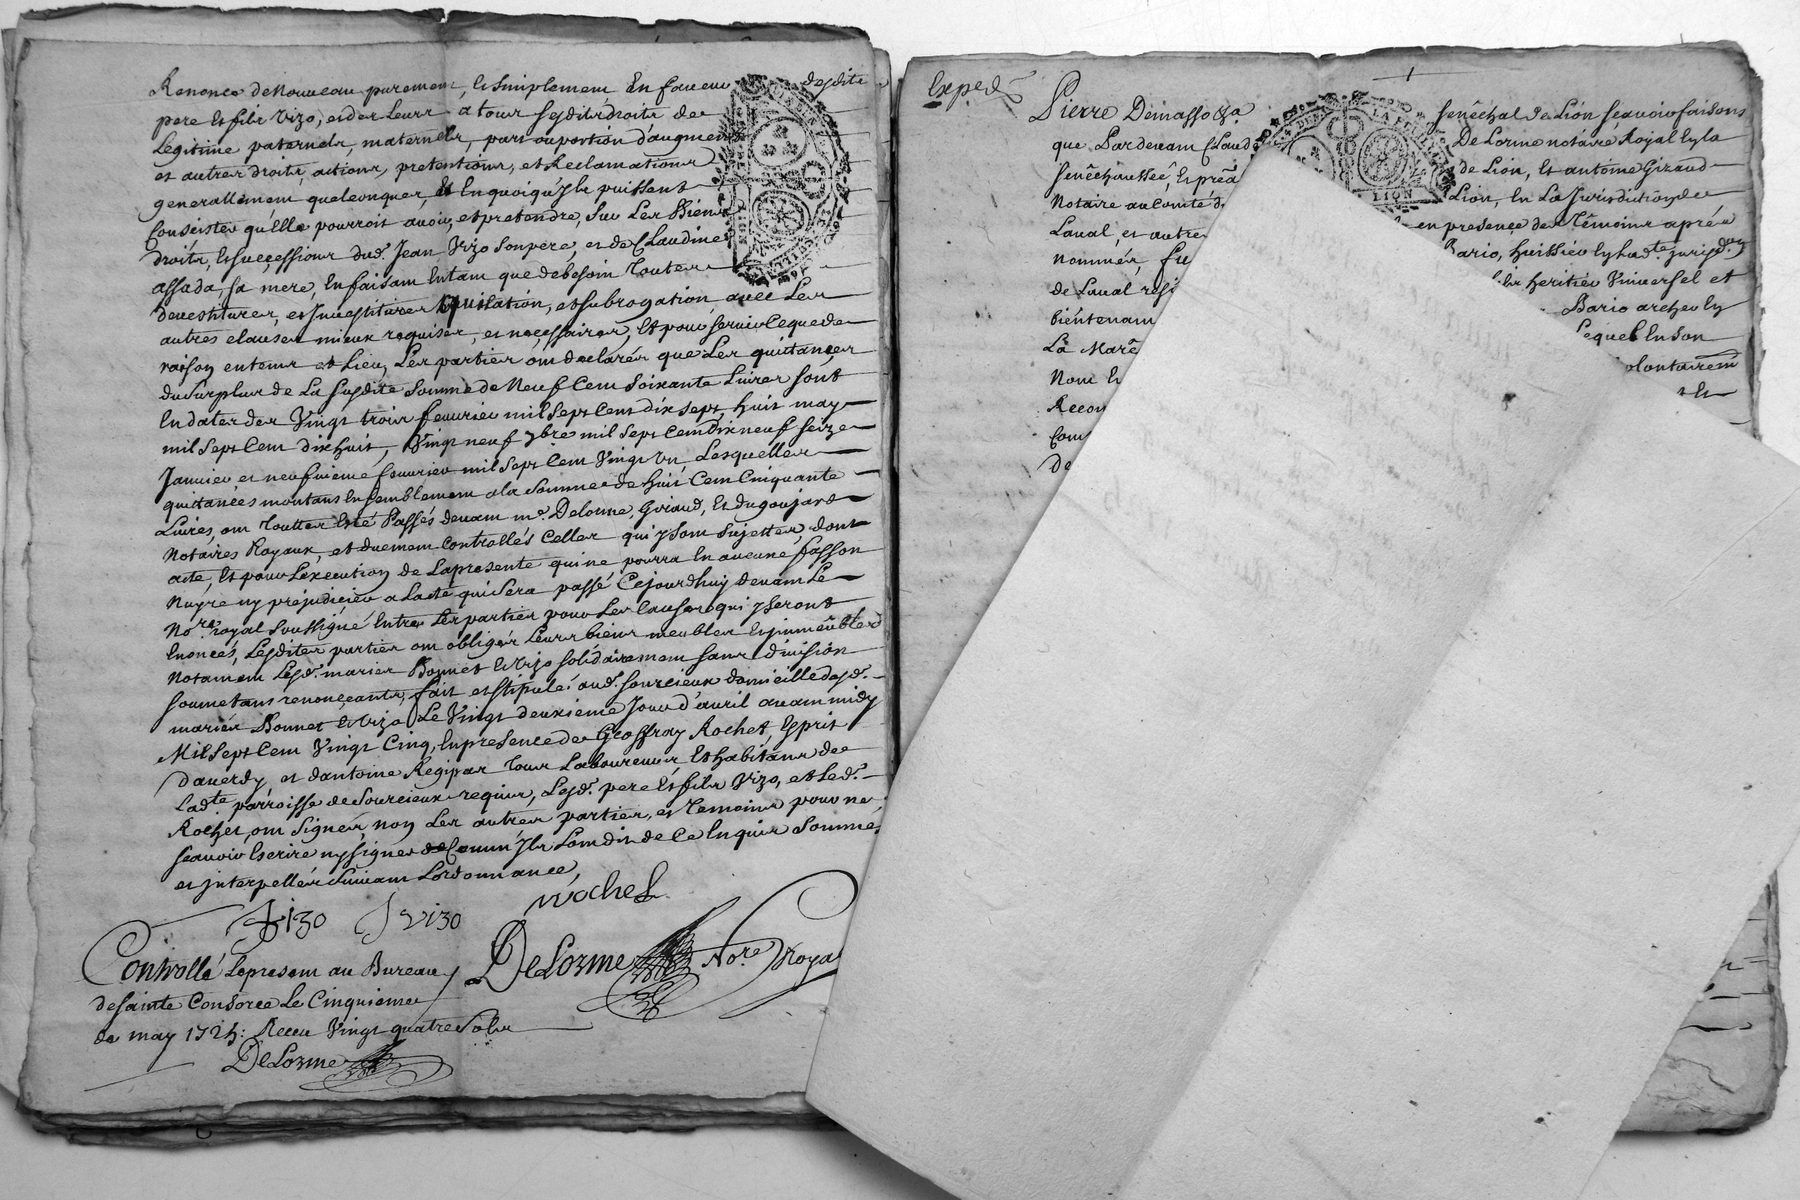 Renonce de Nouveau purement, et simplement En faveur desdits
pere et fils Vizo, et des Leurs a tous sesdits droits de
Legitime paternels, maternels, part ou portion d'augment
et autres droits, actions, pretentions, et Reclamations
generallement quelconques, et En quoi qu'Ils puissent
Consister qu'elle pourroit avoir, et pretendre, sur Les Biens
droits, et successions dud. Jean Vizo son pere, et de Claudine
assada, sa mere, En faisant Entant que de besoin Toutes
devestitures, et Investitures et subrogation avec Les
autres clauses mieux requises, et necessaires, Et pour servir Ce que de
raison en tems et Lieu, Les parties ont declarés que Les quittances
du surplus de La susdite somme de Neuf Cent soixante Livres sont
En dates des Vingt trois fevrier mil sept Cent dix sept, huit may
mil sept Cent dix huit, Vingt neuf 7bre mil sept Cent Dix neuf seize
Janvier et neufvieme fevrier mil sept Cent Vingt Un Lesquelles
quittances montans Ensemblement a la somme de huit Cent Cinquante
Livres, ont Touttes Eté Passés devant me. Delorme, Giraud, Et dugoujard
Notaires Royaux, et duement Controllés Celles qui y sont sujettes, dont
acte, Et pour L'execution de La presente qui ne pourra En aucune fasson
Nuyre ny prejudicier a L'acte qui sera passé Cejourdhuy devant Le
Nore. royal soussigné Entre Les parties pour Les Causes qui y seront
Enoncés, Lesdites parties ont obligés Leurs biens meubles et immeubles
Notament Lesd. mariés Bonnet et Vizo solidairement sans division
soumettans renonçeants, fait et stipulé aud. sourcieux domicille desd.
mariés Bonnet et Vizo Le Vingt deuxieme Jour d'avril avant midy
Mil sept Cent Vingt Cinq, En presence de Geoffray Rochet, Esprit
Daverdy et d'antoine Regipas Tous Laboureurs et habitans de
Ladte. parroisse de Sourcieux requis, Lesd. pere et fils Vizo, et Led.
Rochet, ont signés, non Les autres parties, et Temoins pour ne
scavoir Escrire ny signer Ils L'ont dit de Ce Enquis sommés
et interpellés suivant L'ordonnance,
Vizo J Vizo rochet
DeLorme Nore. Royal
Controllé Le present au Bureau
de Sainte Consorce Le Cinquieme
de may 1725: Receu Vingt quatre sols
DeLorme
Exped
Pierre Demasso senêchal de Lion scavoir faisons
que Pardevant Claude DeLorme notaire Royal En la
senêchaussée, Et de Lion, Et antoine Giraud
Notaire au Comté Lion, En La Jurisdiction de
Laval, et autre en presence des Têmoins aprés
nommés, Bario, huissier En lad.te jurisd.on
de Laval heritier Universel et
bientenant Bario archer En
La Lequel En son
Nom Et volontairem
Recon
LION